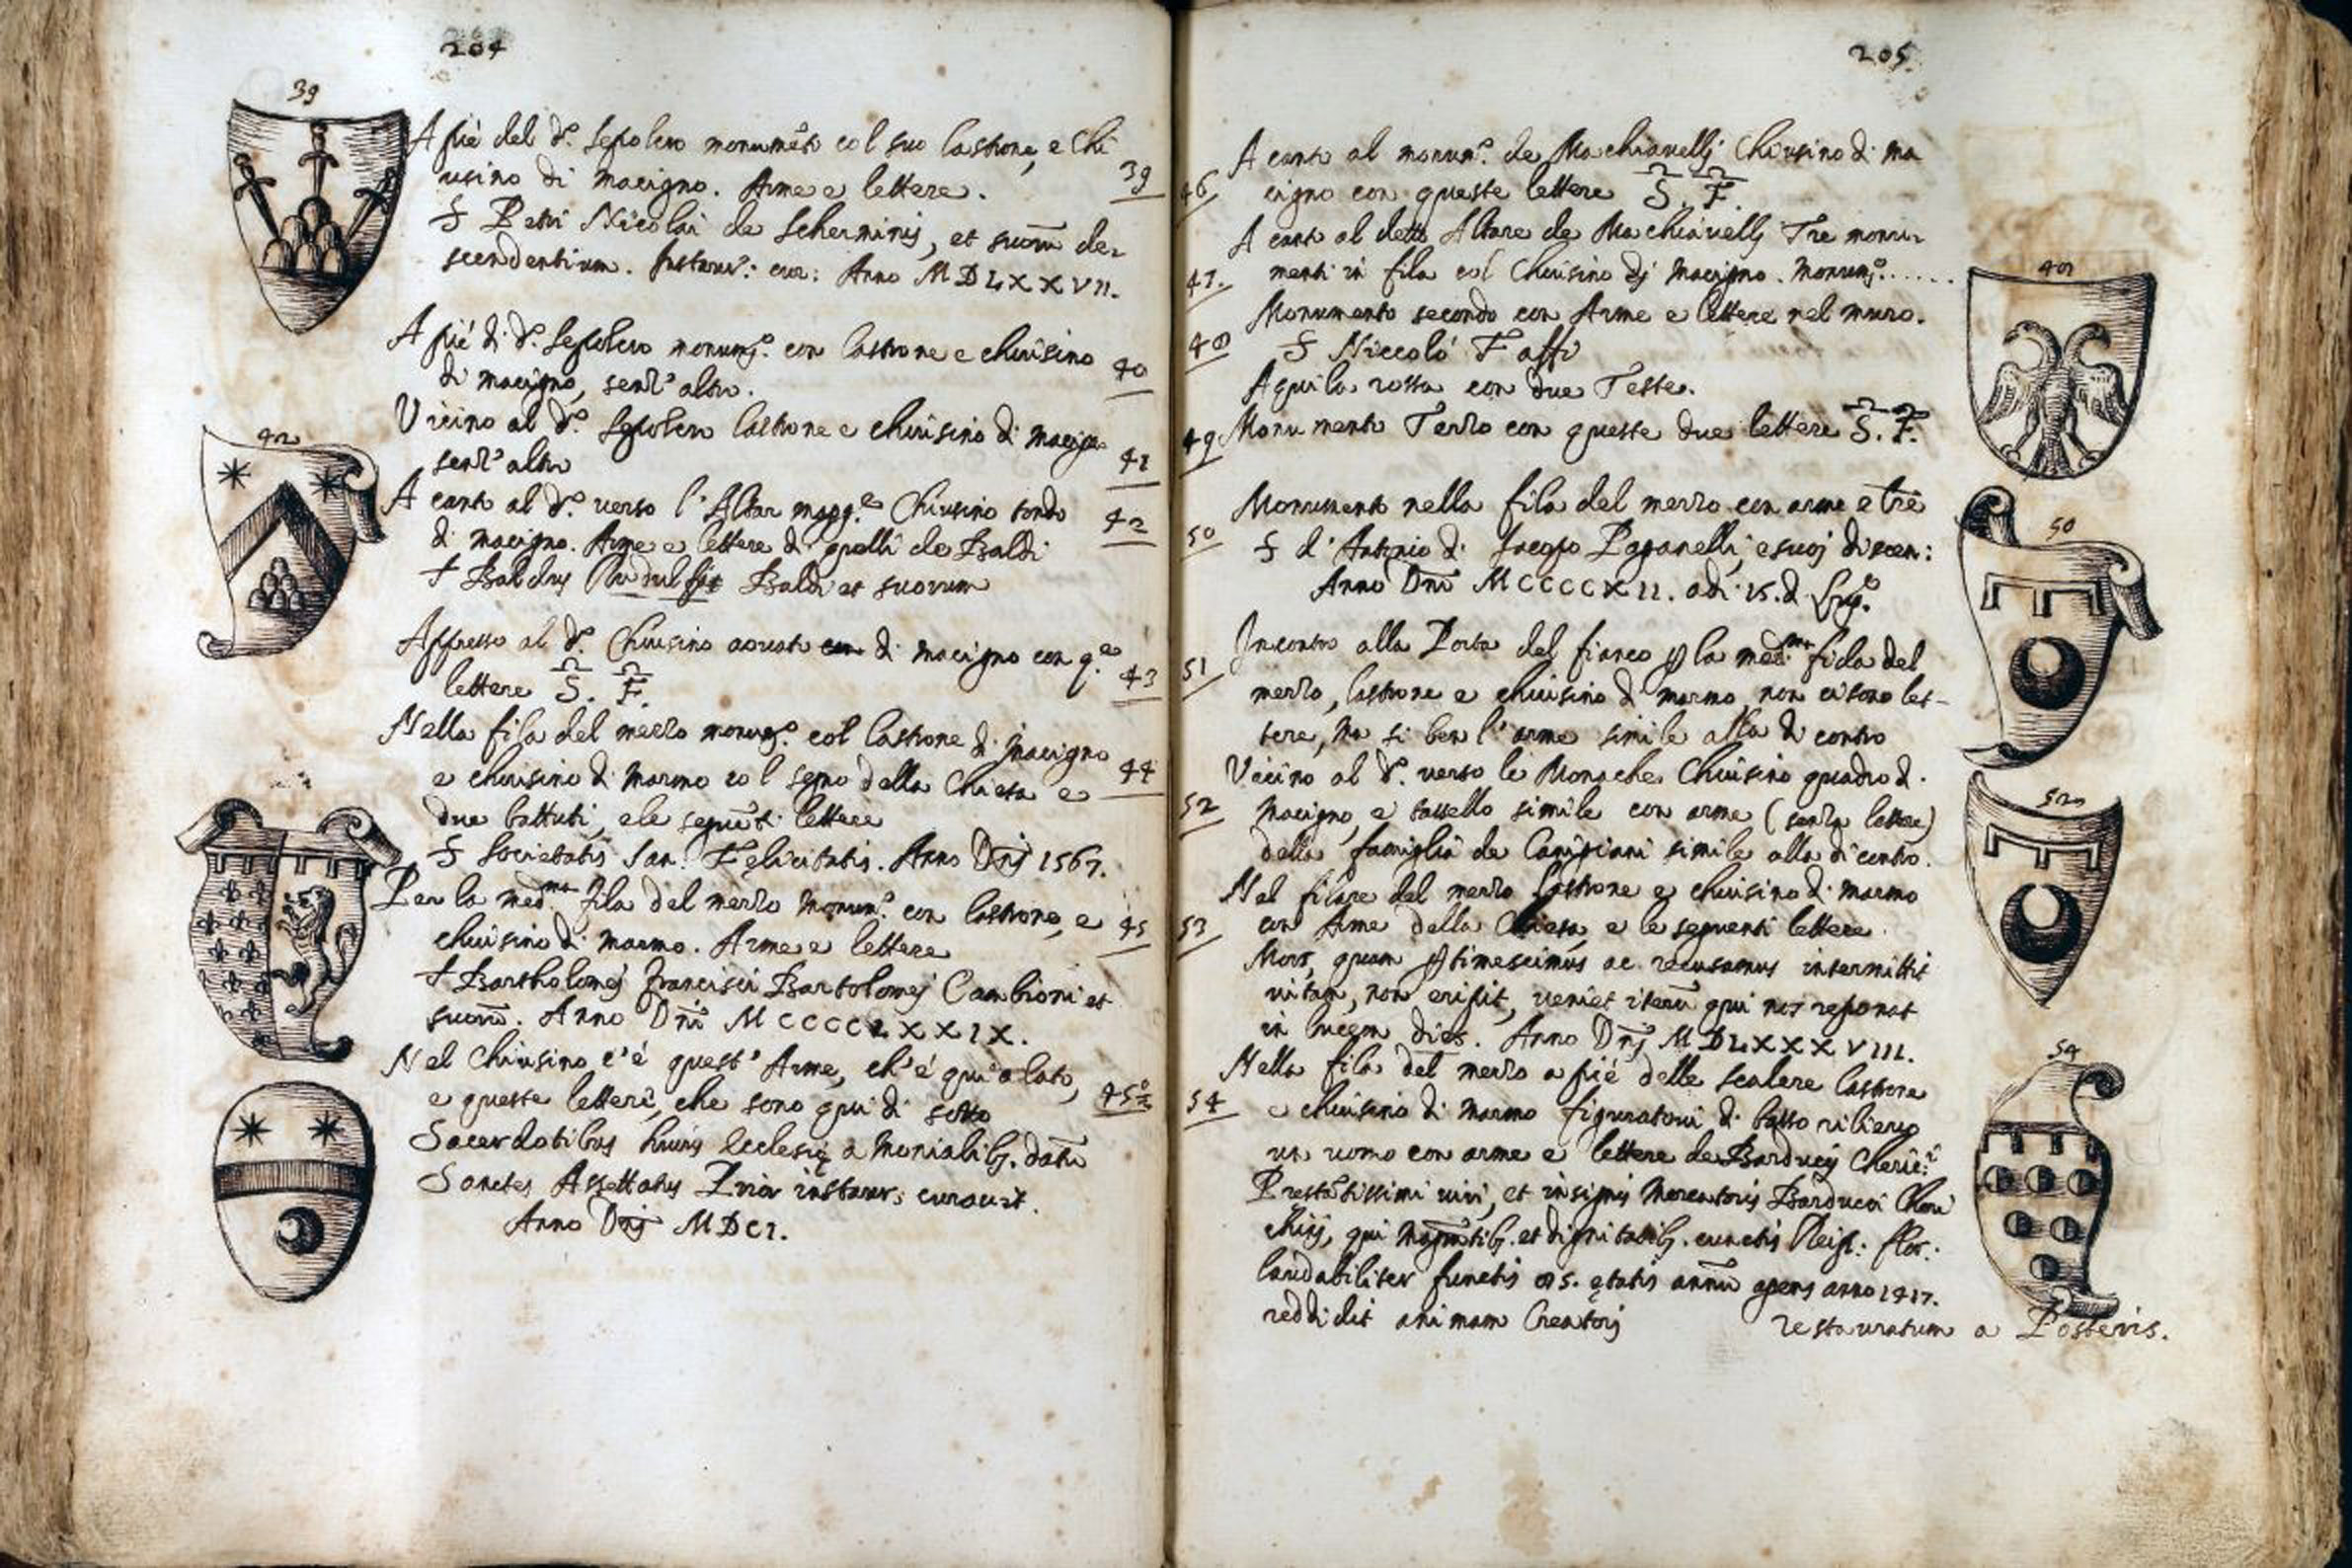 204
39
A piè del d.º sepolcro monumẽto col suo lastrone, e chi
usino di macigno. Arme e lettere.
39
S Petri Nicolai de Scherminis, et suorũ de-
scendentium. Instaur.: cur: Anno MDLXXVII.
A piè di d.º sepolcro monum.º con lastrone e chiusino
di macigno, senz'altro.
40
Vicino al d.º sepolcro lastrone e chiusino di macigno
senz'altro
41
42
A canto al d.º verso l'Altar magg.e Chiusino tondo
di macigno. Arme e lettere di quelli de Baldi
42
† Baldus Baldi et suorum
Appresso al d.º Chiusino aovato di macigno con q.e
lettere S. F.
43
Nella fila del mezzo monum.º col lastrone di macigno
e chiusino di marmo col segno della Chiesa e
44
due battuti, e le seguẽti lettere
S Societatis San: Felicitatis. Anno Dnj 1567.
Per la med.ma fila del mezzo monum.º con lastrone, e
chiusino di marmo. Arme e lettere
45
† Bartholomej Francisci Bartolomej Cambioni et
suorũ. Anno Dni MCCCCLXXIX.
Nel Chiusino c'è quest'Arme, ch'è qui a lato,
e queste lettere, che sono qui di sotto
45º
Sacerdotibus huius Ecclesię a monialib. datũ
Sanctes Assettatus Prior instaur: curavit.
Anno Dnj MDCI.
205
A canto al monum.º de Machiavellj Chiusino di ma
cigno con queste lettere S. F.
46
A canto al detto Altare de Machiavellj Tre monu-
47.
menti in fila col Chiusino dj macigno. monum.º .....
Monumento secondo con Arme e lettere nel muro.
48
48
S Niccolò
Aquila rossa con due Teste.
49
Monumento Terzo con queste due lettere S. F.
Monumento nella fila del mezzo con arme e lr̃e
50
50
S d'Antonio di Jacopo Paganelli, e suoj discen:
Anno Dni MCCCCXII. adi 15. d Lug.º
51
Incontro alla Porta del fianco p la med.ma fila del
mezzo, lastrone e chiusino di marmo, non ci sono let-
tere, ma si ben l'arme simile alla di contro
Vicino al d.º verso le Monache Chiusino quadro di
52
52
macigno, e tassello simile con arme (senza lettere)
della famiglia de Canigiani simile alla di contro.
Nel filare del mezzo lastrone e chiusino di marmo
53
con Arme della Chiesa, e le seguenti lettere
Mors, quam ptimescimus ac recusamus intermittit
vitam, non eripit, veniet iterũ qui nos reponat
in lucem dies. Anno Dnj MDLXXXVIII.
Nella fila del mezzo a piè delle scalere lastrone
54
54
e chiusino di marmo figuratovi di basso rilievo
un uomo con arme e lettere de Barducij Cheric.i
Prestãtissimi viri, et insignis Mercatoris Barducci Cheri
chij, qui et dignitatib. cunctis Reip: flor:
laudabiliter functis 85. ętatis annũ agens anno 1417.
reddidit animam Creatorj
restauratum a Posteris.